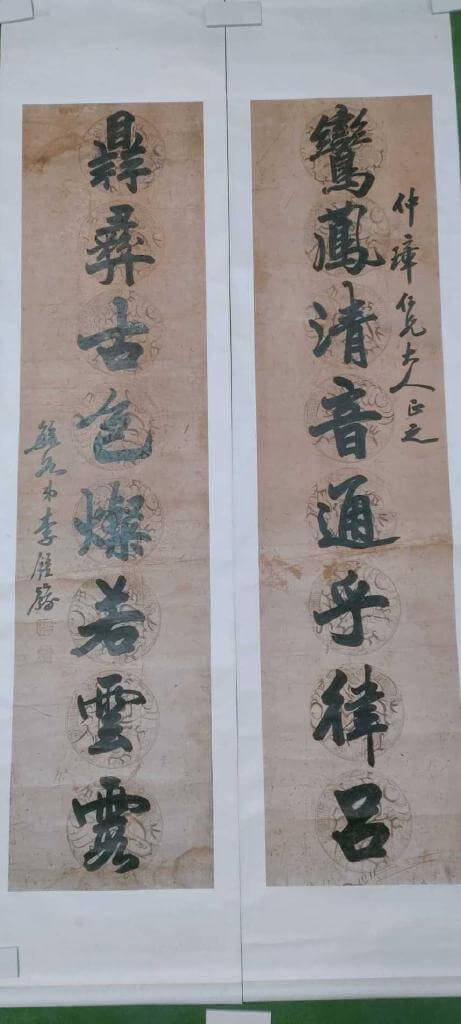 仲璋仁兄大人正之
鸞鳳清音通乎律呂
鼎彝古色燦若雲霞
弟李